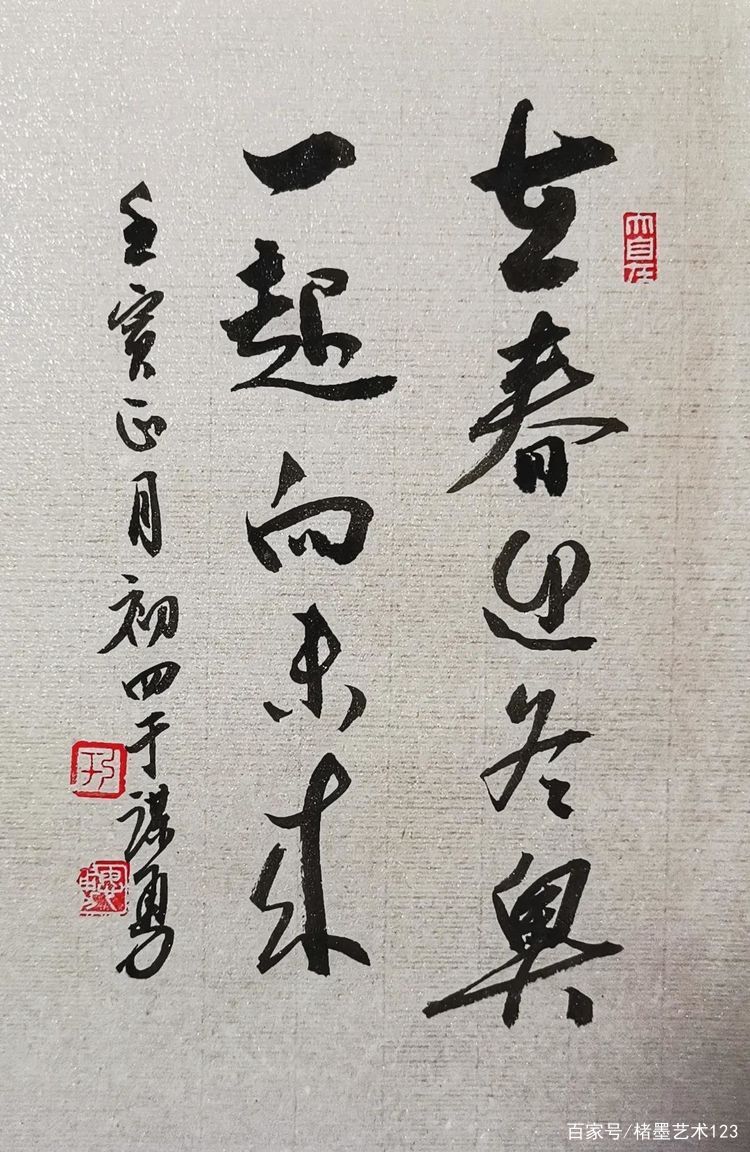 立春迎冬奥
一起向未来
壬寅正月初四于谋勇
大自在
百家号/楮墨艺术123